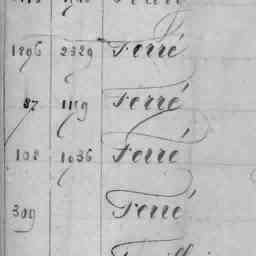 1896 2329 Ferré
87 1119 Ferré
102 1036 Ferré
309 Ferré